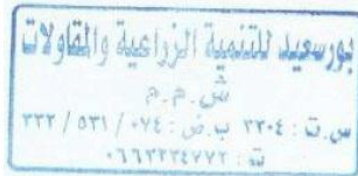 بورسعيد للتنمية الزراعية والمقاولات
ش.م.م
س.ت : ٢٢٠٤ ب.ض : ٠٧٤ / ٥٣١ / ٢٢٢
ت : ٠٦٦٢٢٢٤٧٧٢